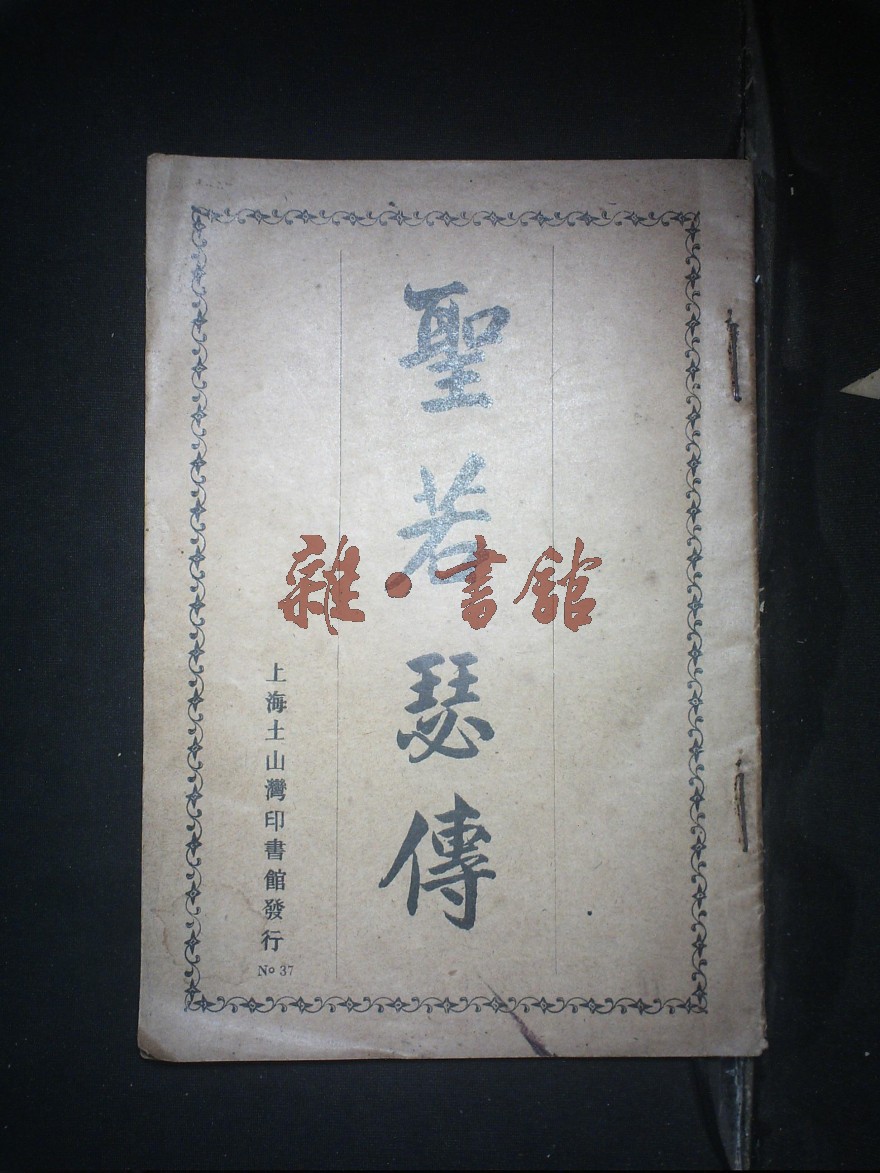 聖若瑟傳
雜·書館
上海土山灣印書館發行
No 37